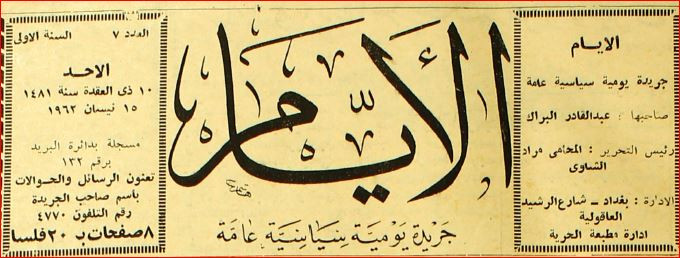 الايام
جريدة يومية سياسية عامة
صاحبها : عبدالقادر البراك
رئيس التحرير : المحامى مراد
الشاوى
الادارة : بغداد ــ شارع الرشيد
العاقولية
ادارة مطبعة الحرية
الأيام
جريدة يومية سياسية عامة
العدد ٧ السنة الاولى
الاحد
١٠ ذى العقدة سنة ١٤٨١
١٥ نيسان ١٩٦٢
مسجلة بدائرة البريد
برقم ١٣٢
تعنون الرسائل والحوالات
باسم صاحب الجريدة
رقم التلفون ٤٧٧٠
٨ صفحات بـ ٢٠ فلسا